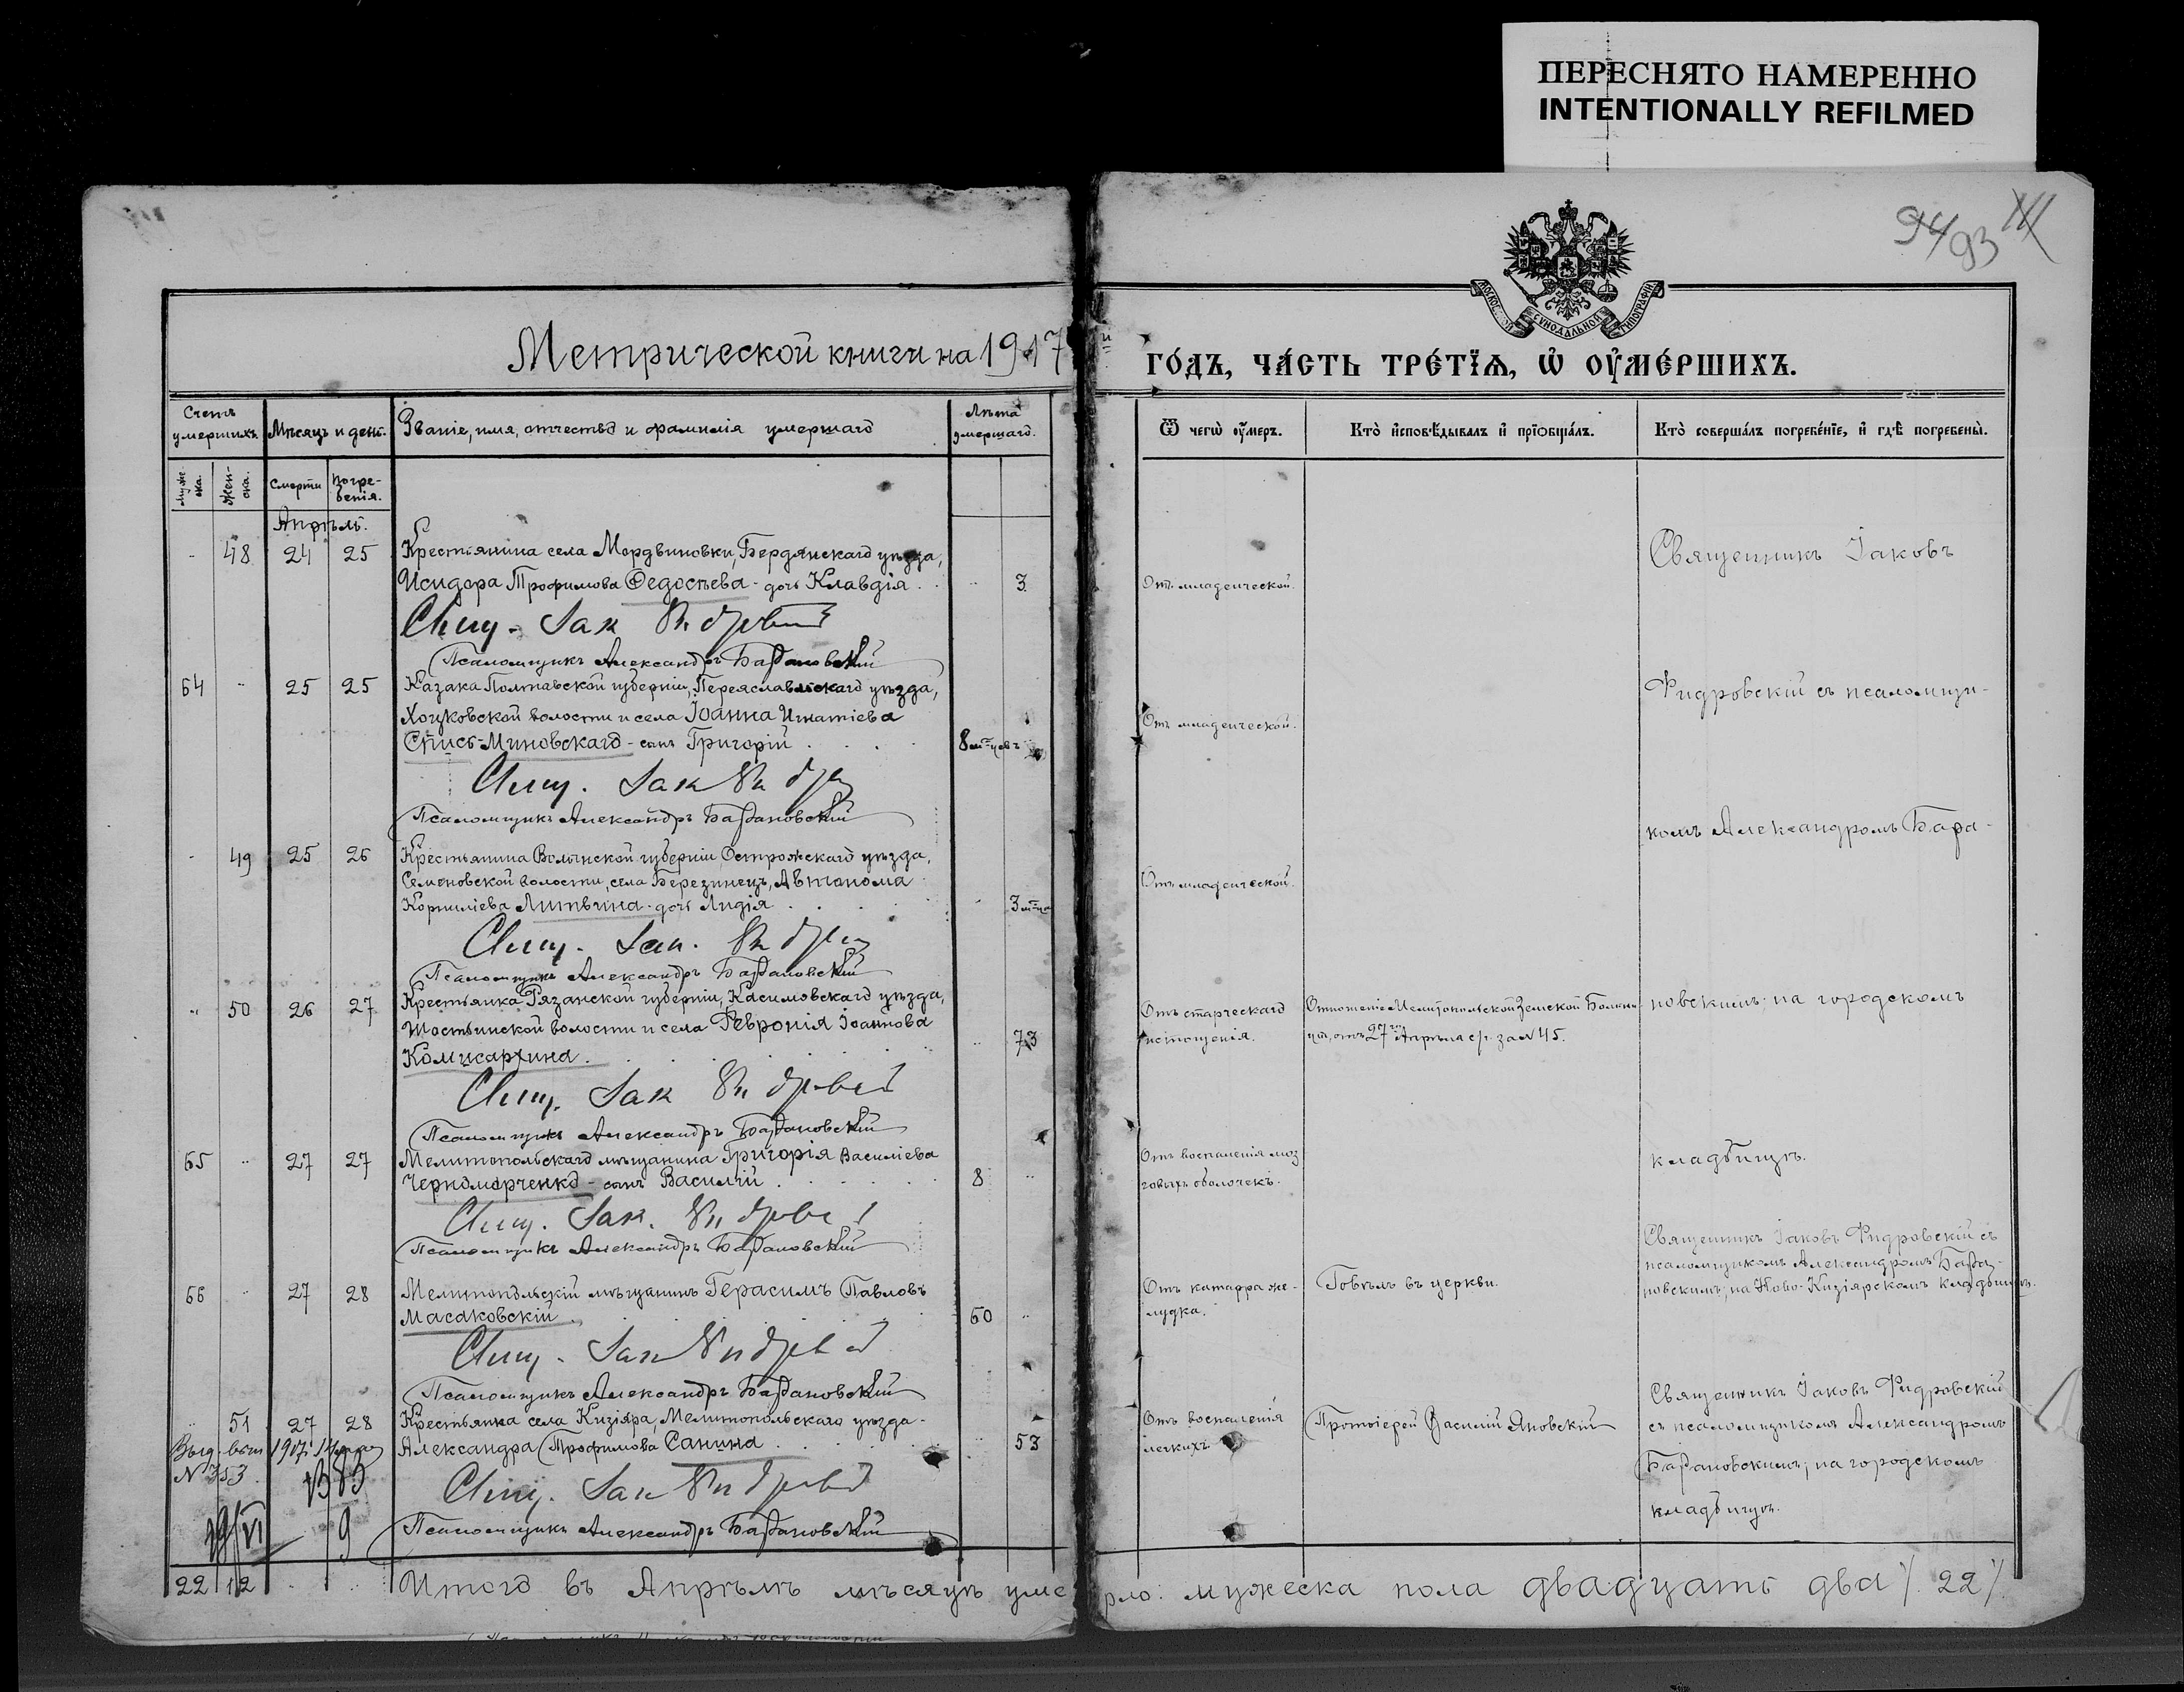 ПЕРЕСНЯТО НАМЕРЕННО
INTENTIONALLY REFILMED
94 93
МОСКОВСКОЙ СѴНОДАЛЬНОЙ ТИПОГРАФІИ
Метрической книги на 1917
го́дъ, ча́сть тре́тїѧ, ѡ҆ оу҆ме́ршихъ.
Счетъ умершихъ.
Мѣсяцъ и день.
Званіе, имя, отчество и фамилія умершаго
Лѣта умершаго.
Ѿ чегѡ̀ оу҆́меръ.
Кто̀ и҆сповѣ́дывалъ и҆ прїѡбща́лъ.
Кто̀ соверша́лъ погребе́нїе, и҆ гдѣ̀ погребены̀.
Муже-ска.
Жен-ска.
Смерти
Погре-бенія.
Апрѣль.
48 24 25 Крестьянина села Мордвиновки, Бердянскаго уѣзда,
Исидора Трофимова Федосѣева - дочь Клавдія 3 Отъ младенческой.
Священникъ Іаковъ
Свящ. Іак
Псаломщикъ Александръ Барановскій
64 25 25 Казака Полтавской губерніи, Переяславльскаго уѣзда,
Фидровскій съ псаломщи-
Хоцковской волости и села Іоанна Игнатіева Отъ младенческой.
Спись-Миновскаго - сынъ Григорій 8 м-цевъ
Свящ. Іак
Псаломщикъ Александръ Барановскій
комъ Александромъ Бара-
49 25 26 Крестьянина Волынской губерніи Острожскаго уѣзда,
Семеновской волости, села Березинецъ, Автонома Отъ младенческой.
Корниліева Литвина - дочь Лидія 3 м-ца
Свящ. Іак.
Псаломщикъ Александръ Барановскій
50 26 27 Крестьянка Рязанской губерніи, Касимовскаго уѣзда, Отъ старческаго Отношеніе Мелитопольской Земской Больни- новскимъ; на городскомъ
Шостьинской волости и села Февронія Іоаннова 73 истощенія. цы, отъ 27го Апрѣля с/г. за № 45.
Комисархина.
Свящ. Іак
Псаломщикъ Александръ Барановскій
65 27 27 Мелитопольскаго мѣщанина Григорія Василіева Отъ воспаленія моз
кладбищѣ.
Черноморченко - сынъ Василій 8 говыхъ оболочекъ.
Свящ. Іак.
Псаломщикъ Александръ Барановскій
Священникъ Іаковъ Фидровскій съ
псаломщикомъ Александромъ Бара-
66 27 28 Мелитопольскій мѣщанинъ Герасимъ Павловъ Отъ катарра же- Говѣлъ въ церкви. новскимъ; на Ново-Кизіярскомъ кладбищѣ.
Масаковскій 60 лудка.
Свящ. Іак
Псаломщикъ Александръ Барановскій
Священникъ Іаковъ Фидровскій
51 27 28 Крестьянка села Кизіяра, Мелитопольскаго уѣзда - Отъ воспаленія Протоіерей Василій Яновскій съ псаломщикомъ Александромъ
Александра Трофимова Санина 53 легкихъ
Барановскимъ; на городскомъ
№ 353
Свящ. Іак
кладбищѣ.
19/VI 9 Псаломщикъ Александръ Барановскій
22 12 Итого въ Апрѣлѣ мѣсяцѣ умерло: мужеска пола двадцать два /. 22 /.